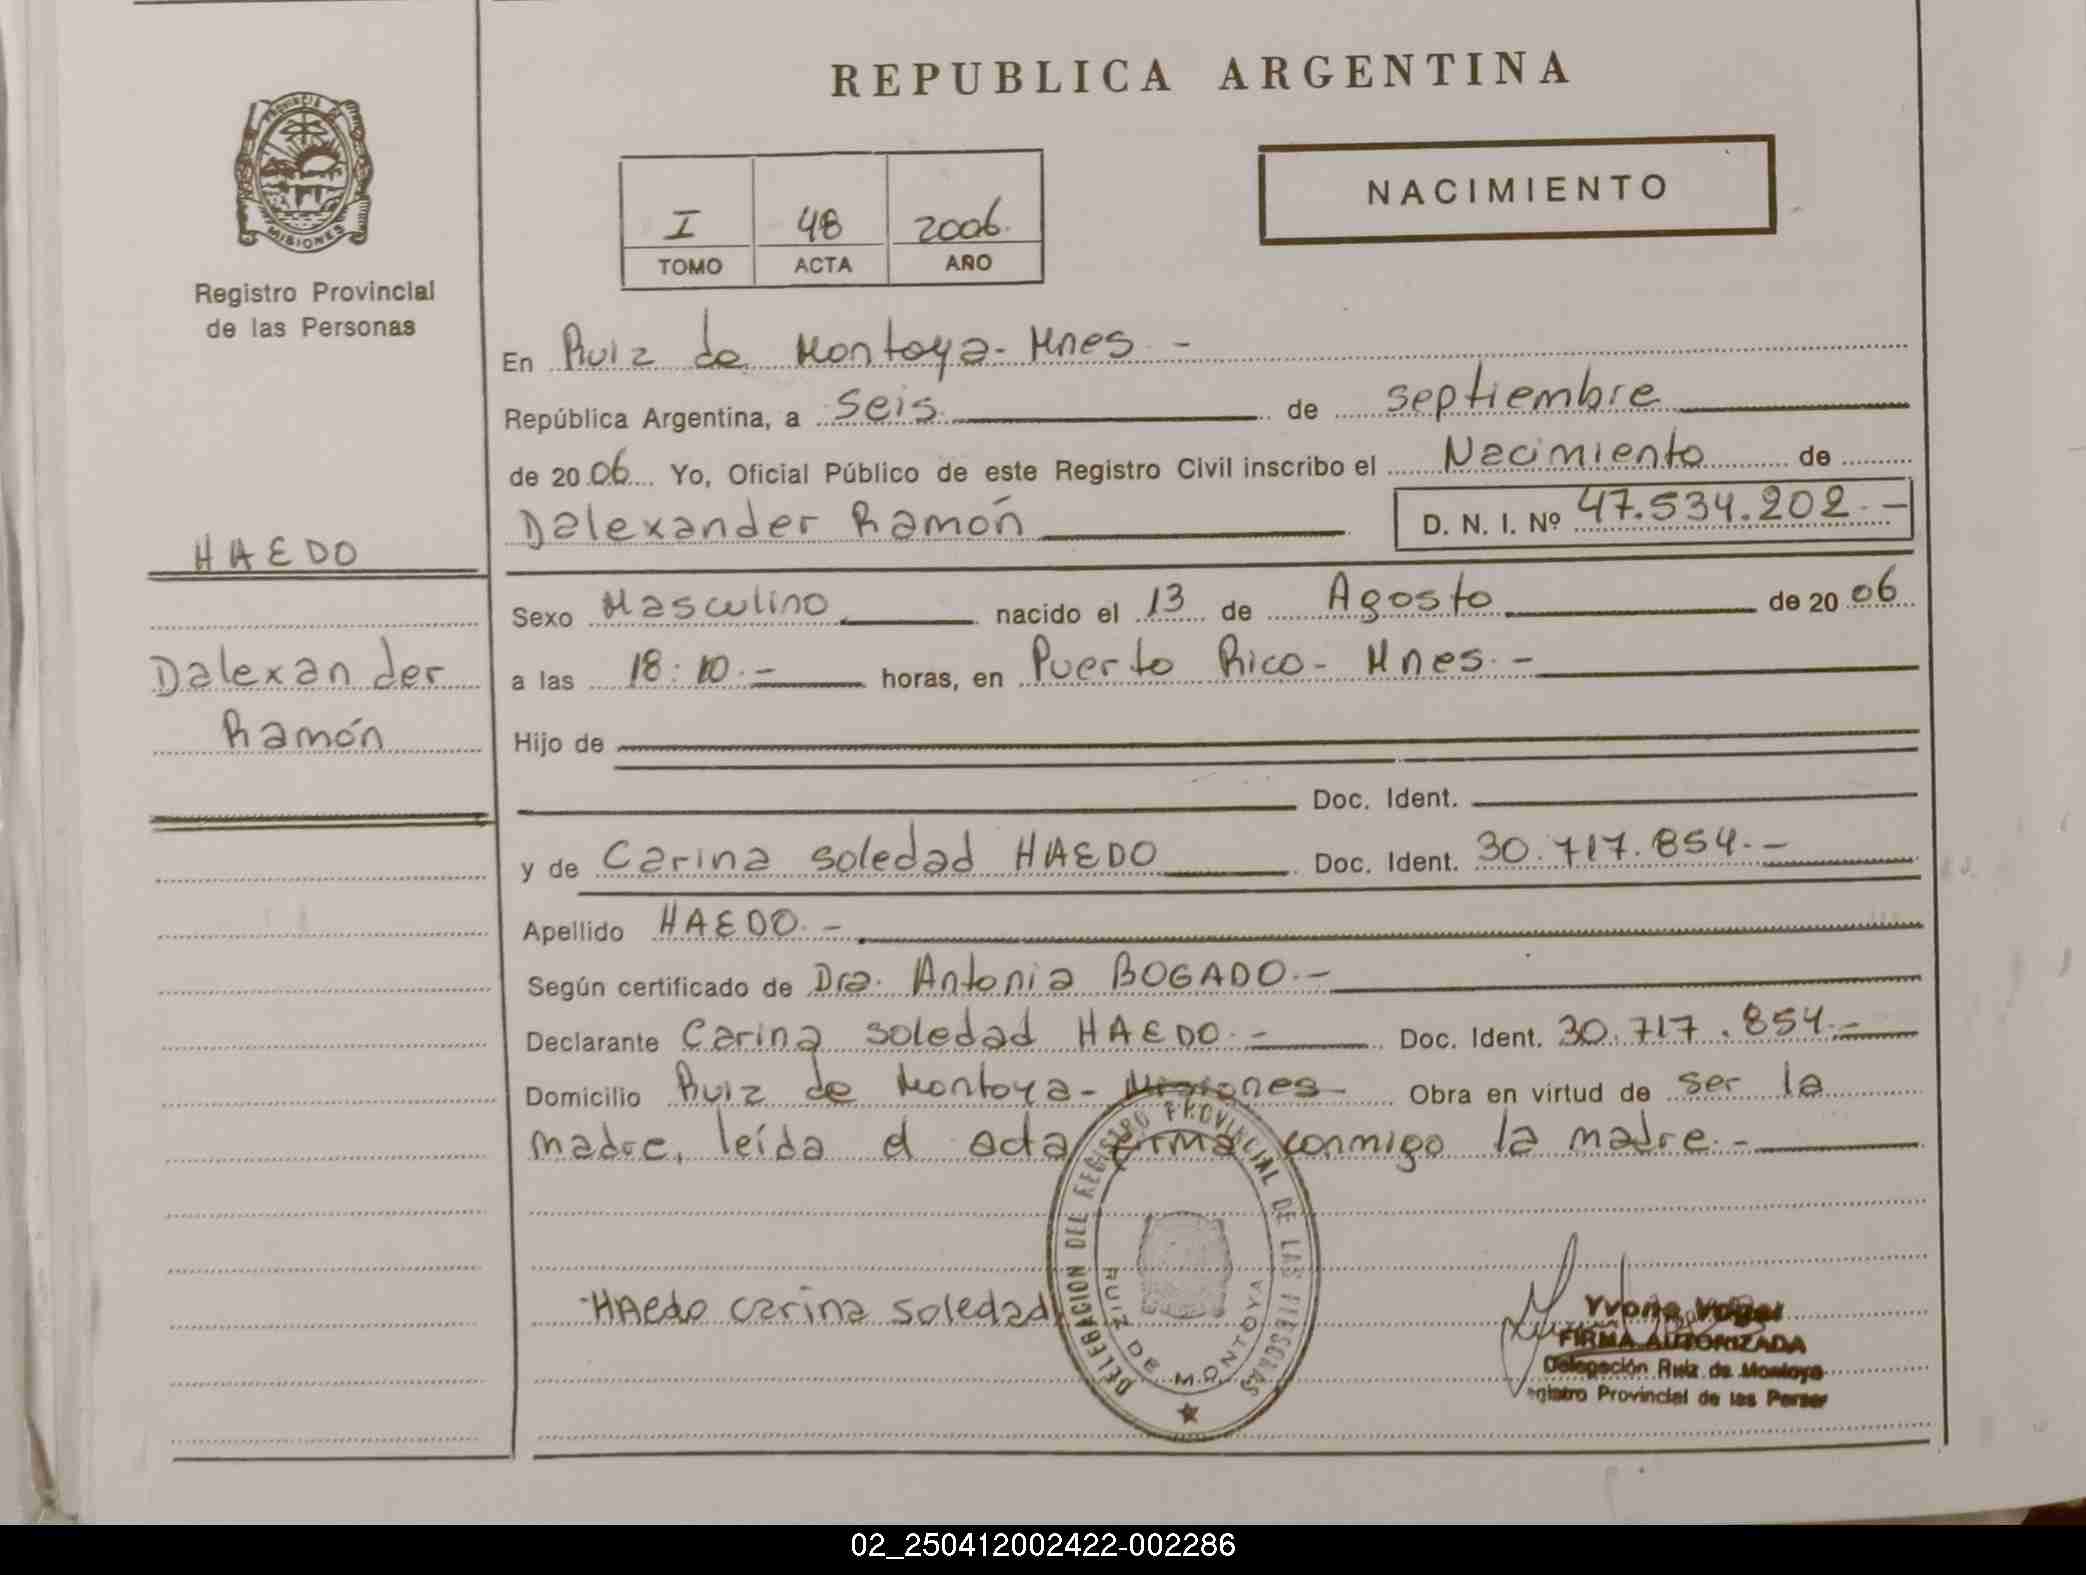 REPUBLICA ARGENTINA
PROVINCIA DE
MISIONES
Registro Provincial
de las Personas
I 48 2006.
TOMO ACTA AÑO
NACIMIENTO
En Ruiz de Montoya - Mnes -
República Argentina, a seis de septiembre
de 20 06 Yo, Oficial Público de este Registro Civil inscribo el Nacimiento de
Dalexander Ramón D. N. I. Nº 47.534.202.-
HAEDO
Dalexander
Ramón
Sexo Masculino nacido el 13 de Agosto de 20 06
a las 18:10.- horas, en Puerto Rico - Mnes.-
Hijo de
Doc. Ident.
y de Carina soledad HAEDO Doc. Ident. 30.717.854.-
Apellido HAEDO.-
Según certificado de Dra. Antonia BOGADO.-
Declarante Carina soledad HAEDO.- Doc. Ident. 30.717.854.-
Domicilio Ruiz de Montoya - Misiones - Obra en virtud de ser la
madre, leída el acta firma conmigo la madre.-
DELEGACION DEL REGISTRO PROVINCIAL DE LAS PERSONAS
RUIZ DE MONTOYA
HAedo carina soledad
Yvone
FIRMA AUTORIZADA
Delegación Ruiz de Montoya
Provincial de las
02_250412002422-002286